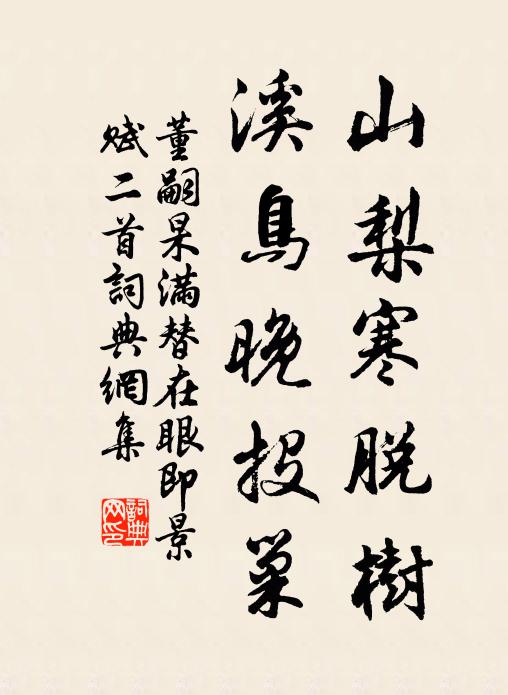 山梨寒脱樹
溪鳥晚投巢
董嗣杲滿替在眼即景
賦二首詞典網集
詞典
网印